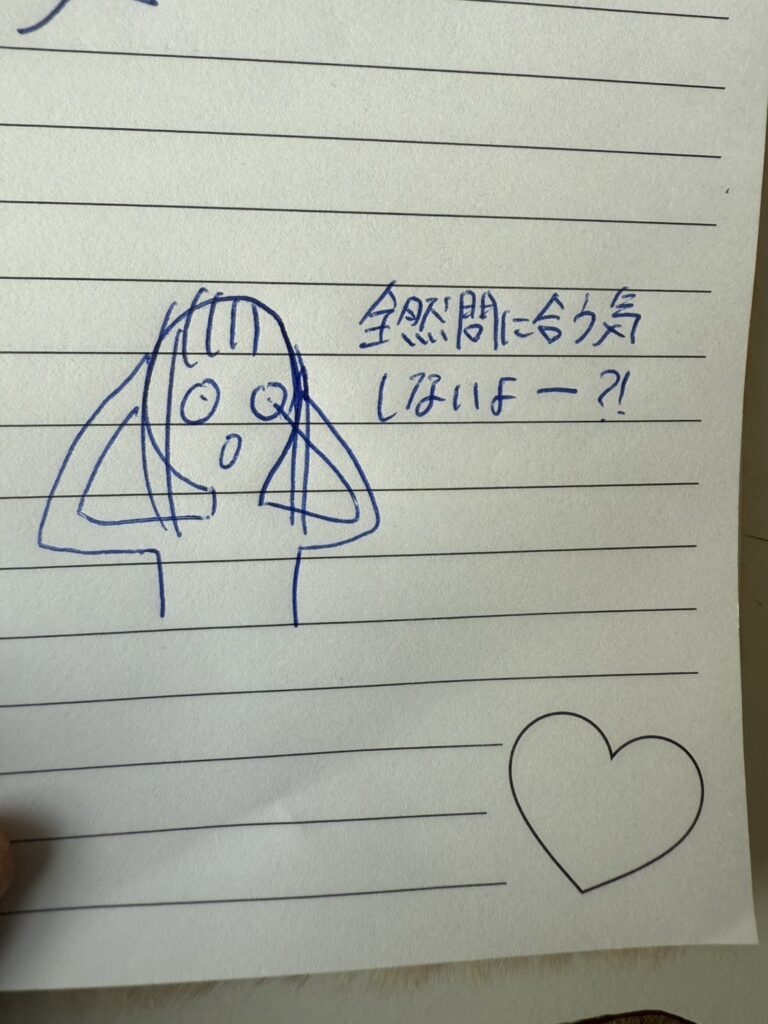 全然間に合う気
しないよー?!